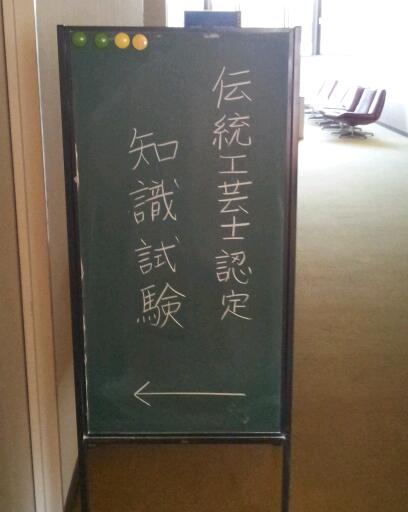 伝統工芸士認定
知識試験
←